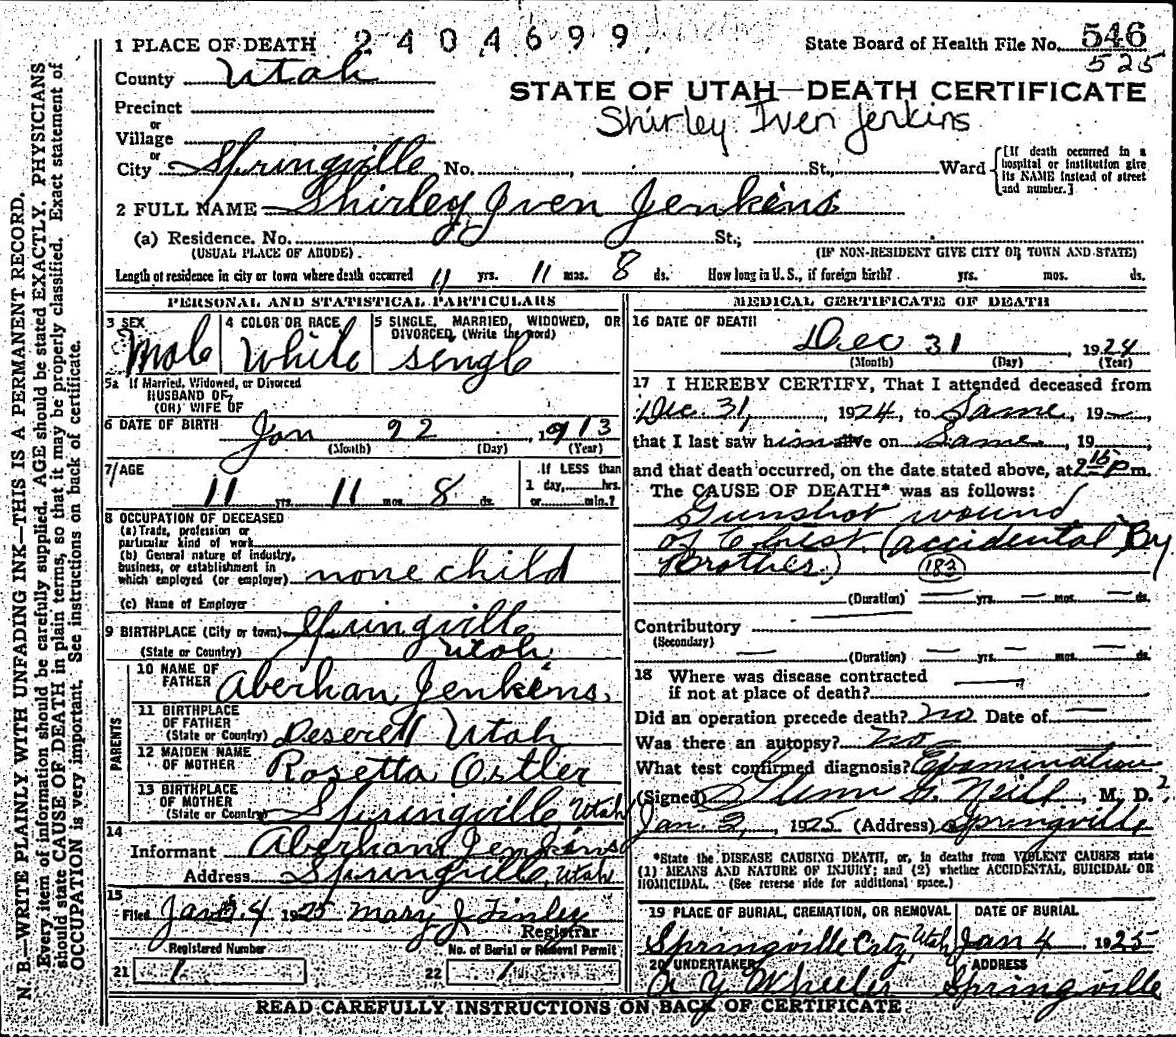 1 PLACE OF DEATH 2404699 State Board of Health File No. 546
525
County Utah
STATE OF UTAH—DEATH CERTIFICATE
Shirley Iven Jenkins
Precinct
or
Village
or
City Springville No. St., Ward
[If death occurred in a hospital or institution give its NAME instead of street and number.]
2 FULL NAME Shirley Iven Jenkins
(a) Residence. No. St.;
(USUAL PLACE OF ABODE) (IF NON-RESIDENT GIVE CITY OR TOWN AND STATE)
Length of residence in city or town where death occurred 11 yrs. 11 mos. 8 ds. How long in U. S., if foreign birth? yrs. mos. ds.
PERSONAL AND STATISTICAL PARTICULARS
3 SEX
Male
4 COLOR OR RACE
White
5 SINGLE, MARRIED, WIDOWED, OR DIVORCED, (Write the word)
Single
5a If Married, Widowed, or Divorced
HUSBAND OF
(OR) WIFE OF
6 DATE OF BIRTH Jan 22, 1913
(Month) (Day) (Year)
7 AGE
11 yrs. 11 mos. 8 ds.
If LESS than
1 day, hrs.
or min.?
8 OCCUPATION OF DECEASED
(a) Trade, profession or
particular kind of work
(b) General nature of industry,
business, or establishment in
which employed (or employer) none child
(c) Name of Employer
9 BIRTHPLACE (City or town) Springville
(State or Country) Utah
PARENTS
10 NAME OF FATHER Aberhan Jenkins.
11 BIRTHPLACE OF FATHER
(State or Country) Deserett Utah
12 MAIDEN NAME OF MOTHER Rosetta Ostler
13 BIRTHPLACE OF MOTHER
(State or Country) Springville Utah
14
Informant Aberhan Jenkins
Address Springville, Utah
15
Filed Jan. 4 1925 Mary J Finley
Registrar
Registered Number
21 1
No. of Burial or Removal Permit
22 1
MEDICAL CERTIFICATE OF DEATH
16 DATE OF DEATH
Dec 31 1924
(Month) (Day) (Year)
17 I HEREBY CERTIFY, That I attended deceased from
Dec. 31, 1924, to Same, 19
that I last saw him alive on Same, 19
and that death occurred, on the date stated above, at 2 15 p m.
The CAUSE OF DEATH* was as follows:
Gunshot wound
of Chest. (accidental By
Brother.) 183
(Duration) — yrs. — mos. — ds.
Contributory
(Secondary)
(Duration) — yrs. — mos. — ds.
18 Where was disease contracted
if not at place of death?
Did an operation precede death? no Date of —
Was there an autopsy? No
What test confirmed diagnosis? Examination
(Signed) Glenn G. Neill, M. D.
Jan. 2, 1925 (Address) Springville
*State the DISEASE CAUSING DEATH, or, in deaths from VIOLENT CAUSES state
(1) MEANS AND NATURE OF INJURY; and (2) whether ACCIDENTAL, SUICIDAL OR
HOMICIDAL. (See reverse side for additional space.)
19 PLACE OF BURIAL, CREMATION, OR REMOVAL
Springville City, Utah
DATE OF BURIAL
Jan 4 1925
20 UNDERTAKER
A Y Wheeler
ADDRESS
Springville
READ CAREFULLY INSTRUCTIONS ON BACK OF CERTIFICATE
N. B.—WRITE PLAINLY WITH UNFADING INK—THIS IS A PERMANENT RECORD.
Every item of information should be carefully supplied. AGE should be stated EXACTLY. PHYSICIANS
should state CAUSE OF DEATH in plain terms, so that it may be properly classified. Exact statement of
OCCUPATION is very important. See instructions on back of certificate.